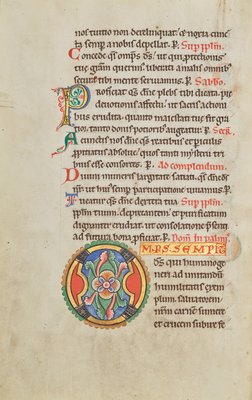 nos tuitio non derelinquat & noxia cunc
ta semp a nobis depellat. P. Sup pplm.
Concede qs omps ds ut qui protectionis
tuę gram querim, liberati a malis omnib
secura tibi mente seruiamus. P. Sabbo.
Proficiat qs dne plebs tibi dicata pię
deuotionis affectu. ut sacris actioni
bus erudita. quanto maiestati tuę fit gra
tior. tanto donis potiorib augeatur. P. Sec
A cunctis nos qs dne reatibus et piculis
ppitiatus absolue. quos tanti mysterii tri
buis esse consortes. P. Ad complendum.
Diuini muneris largitate satiati. qs dne ds
nr ut hui semp participatione uiuamus. P.
Tueatur qs dne dextera tua Sup pplm
pplm tuum deprecantem. et purificatum
dignanter erudiat. ut consolatione psenti
ad futura bona pficiat. P. Dom in palmis
MPS SEMPITE
DS qui humano ge
neri ad imitandu
humilitatis exem
plum. saluatorem
nrm carne sumere
et crucem subire fe